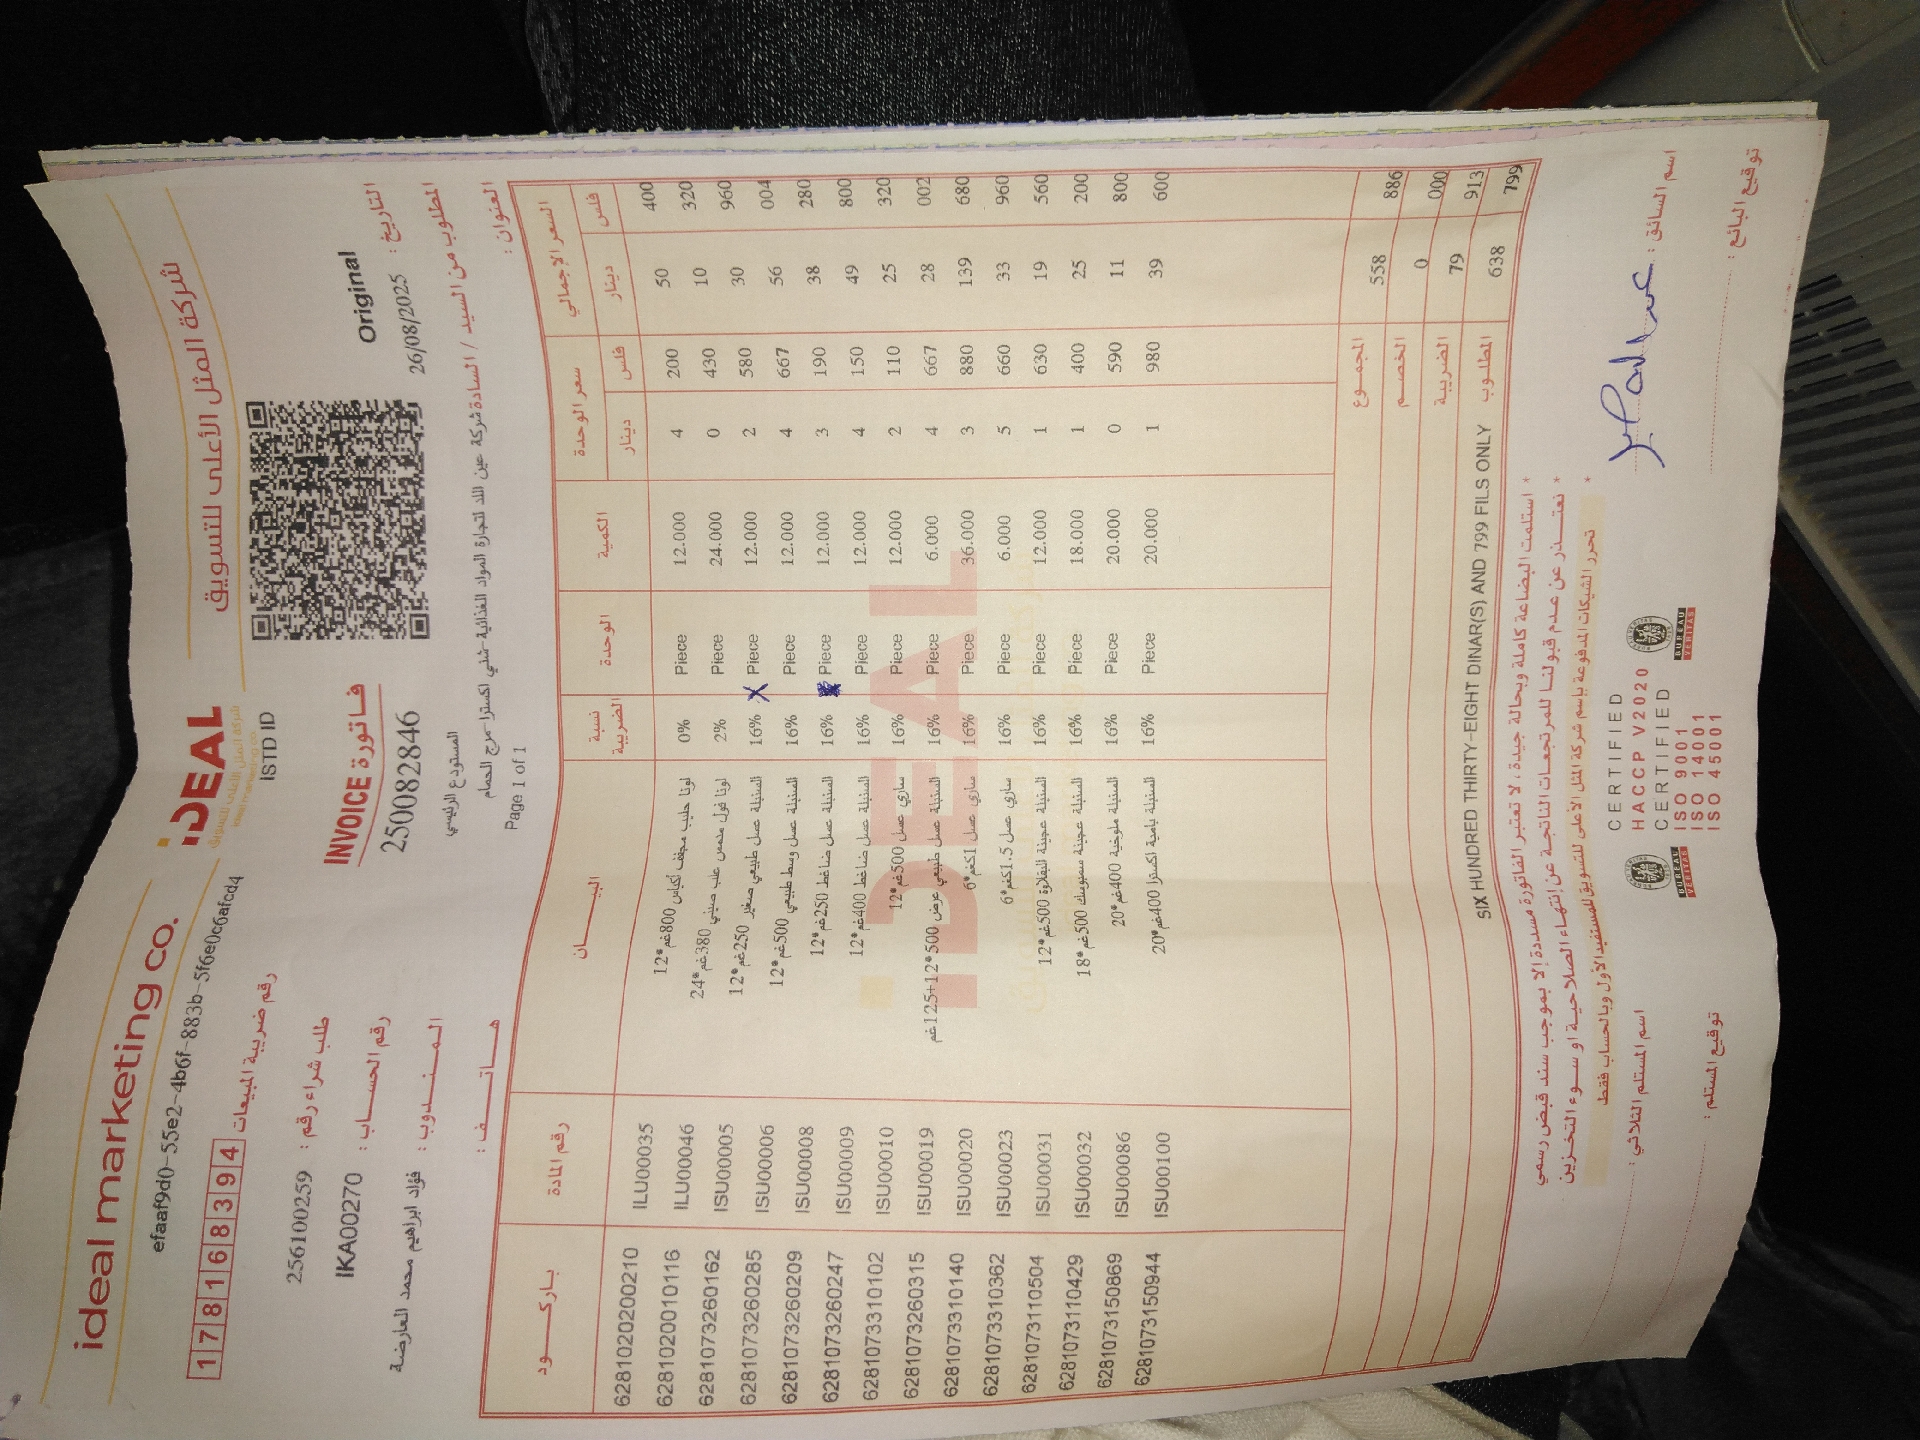 ideal marketing co.
iDEAL
شركة المثل الأعلى للتسويق
شركة المثل الأعلى للتسويق
ideal marketing co.
efaaf9d0-55e2-4b6f-883b-5f6e0c6afcd4
ISTD ID
178168394 رقم ضريبة المبيعات
256100259 : طلب شراء رقم
فاتورة INVOICE
Original
IKA00270 : رقم الحساب
250082846
التاريخ : 26/08/2025
المندوب : فؤاد ابراهيم محمد العارضة
المستودع الرئيسي
المطلوب من السيد / السادة شركة عين اللد لتجارة المواد الغذائية-شني اكسترا-مرج الحمام
هاتف :
Page 1 of 1
العنوان :
باركود رقم المادة البيان نسبة الضريبة الوحدة الكمية سعر الوحدة السعر الإجمالي
دينار فلس دينار فلس
6281020200210 ILU00035 لونا حليب مجفف اكياس 800غم*12 0% Piece 12.000 4 200 50 400
6281020010116 ILU00046 لونا فول مدمس علب صيني 380غم*24 2% Piece 24.000 0 430 10 320
6281073260162 ISU00005 السنبلة عسل طبيعي صغير 250غم*12 16% X Piece 12.000 2 580 30 960
6281073260285 ISU00006 السنبلة عسل وسط طبيعي 500غم*12 16% Piece 12.000 4 667 56 004
6281073260209 ISU00008 السنبلة عسل ضاغط 250غم*12 16% Piece 12.000 3 190 38 280
6281073260247 ISU00009 السنبلة عسل ضاغط 400غم*12 16% Piece 12.000 4 150 49 800
6281073310102 ISU00010 ساري عسل 500غم*12 16% Piece 12.000 2 110 25 320
6281073260315 ISU00019 السنبلة عسل طبيعي عرض 500*12+125غم 16% Piece 6.000 4 667 28 002
6281073310140 ISU00020 ساري عسل 1كغم*6 16% Piece 36.000 3 880 139 680
6281073310362 ISU00023 ساري عسل 1.5كغم*6 16% Piece 6.000 5 660 33 960
6281073110504 ISU00031 السنبلة عجينة البقلاوة 500غم*12 16% Piece 12.000 1 630 19 560
6281073110429 ISU00032 السنبلة عجينة سمبوسك 500غم*18 16% Piece 18.000 1 400 25 200
6281073150869 ISU00086 السنبلة ملوخية 400غم*20 16% Piece 20.000 0 590 11 800
6281073150944 ISU00100 السنبلة بامية اكسترا 400غم*20 16% Piece 20.000 1 980 39 600
iDEAL
المجموع 558 886
الخصم 0 000
الضريبة 79 913
SIX HUNDRED THIRTY-EIGHT DINAR(S) AND 799 FILS ONLY المطلوب 638 799
* استلمت البضاعة كاملة وبحالة جيدة، لا تعتبر الفاتورة مسددة إلا بموجب سند قبض رسمي
* نعتذر عن عدم قبولنا للمرتجعات الناتجة عن إنتهاء الصلاحية او سوء التخزين
* تحرر الشيكات المدفوعة بإسم شركة المثل الأعلى للتسويق للمستفيد الأول وبالحساب فقط
اسم المستلم الثلاثي :
اسم السائق :
توقيع المستلم :
توقيع البائع :
CERTIFIED
HACCP V2020
CERTIFIED
ISO 9001
ISO 14001
ISO 45001
BUREAU VERITAS
BUREAU VERITAS